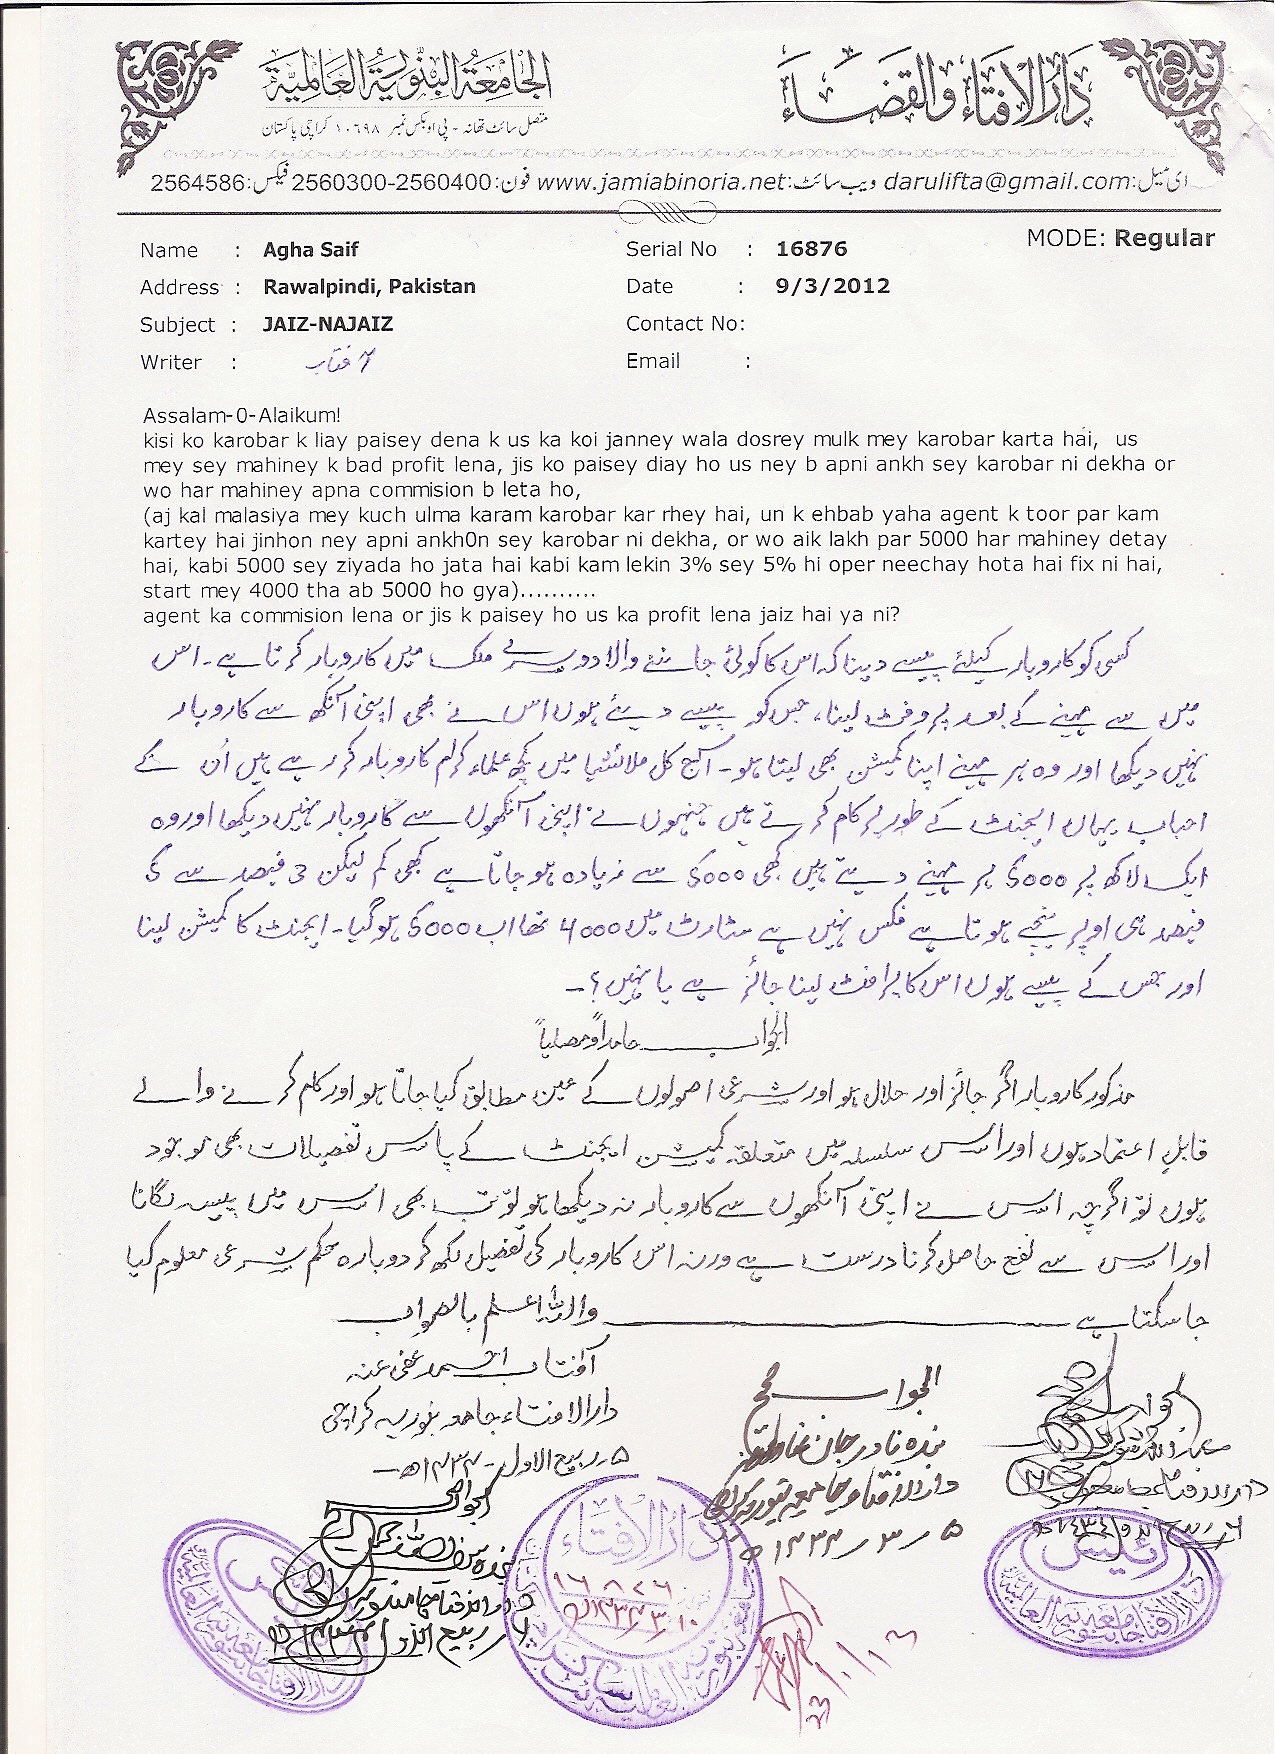 الجامعة البنورية العالمية
دار الافتاء والقضاء
متصل سائٹ تھانہ - پی او بکس نمبر ۱۰۶۹۸ کراچی پاکستان
ای میل: darulifta@gmail.com ویب سائٹ: www.jamiabinoria.net فون: 2560300-2560400 فیکس: 2564586
MODE: Regular
Name : Agha Saif
Serial No : 16876
Address : Rawalpindi, Pakistan
Date : 9/3/2012
Subject : JAIZ-NAJAIZ
Contact No:
Writer : آفتاب
Email :
Assalam-0-Alaikum!
kisi ko karobar k liay paisey dena k us ka koi janney wala dosrey mulk mey karobar karta hai, us
mey sey mahiney k bad profit lena, jis ko paisey diay ho us ney b apni ankh sey karobar ni dekha or
wo har mahiney apna commision b leta ho,
(aj kal malasiya mey kuch ulma karam karobar kar rhey hai, un k ehbab yaha agent k toor par kam
kartey hai jinhon ney apni ankh0n sey karobar ni dekha, or wo aik lakh par 5000 har mahiney detay
hai, kabi 5000 sey ziyada ho jata hai kabi kam lekin 3% sey 5% hi oper neechay hota hai fix ni hai,
start mey 4000 tha ab 5000 ho gya)..........
agent ka commision lena or jis k paisey ho us ka profit lena jaiz hai ya ni?
کسی کو کاروبار کیلئے پیسے دینا کہ اس کا کوئی جاننے والا دوسرے ملک میں کاروبار کرتا ہے۔ اس
میں سے مہینے کے بعد پروفٹ لینا، جس کو پیسے دیئے ہوں اس نے بھی اپنی آنکھ سے کاروبار
نہیں دیکھا اور وہ ہر مہینے اپنا کمیشن بھی لیتا ہو۔ آج کل ملائشیا میں کچھ علماء کرام کاروبار کر رہے ہیں اُن کے
احباب یہاں ایجنٹ کے طور پر کام کرتے ہیں جنہوں نے اپنی آنکھوں سے کاروبار نہیں دیکھا اور وہ
ایک لاکھ پر 5000 ہر مہینے دیتے ہیں کبھی 5000 سے زیادہ ہو جاتا ہے کبھی کم لیکن 3 فیصد سے 5
فیصد ہی اوپر نیچے ہوتا ہے فکس نہیں ہے سٹارٹ میں 4000 تھا اب 5000 ہو گیا۔ ایجنٹ کا کمیشن لینا
اور جس کے پیسے ہوں اس کا پرافٹ لینا جائز ہے یا نہیں؟۔
الجواب حامداً ومصلیاً
مذکور کاروبار اگر جائز اور حلال ہو اور شرعی اصولوں کے عین مطابق کیا جاتا ہو اور کام کرنے والے
قابلِ اعتماد ہوں اور اس سلسلہ میں متعلقہ کمیشن ایجنٹ کے پاس تفصیلات بھی موجود
ہوں تو اگرچہ اس نے اپنی آنکھوں سے کاروبار نہ دیکھا ہو تو تب بھی اس میں پیسہ لگانا
اور اس سے نفع حاصل کرنا درست ہے ورنہ اس کاروبار کی تفصیل لکھ کر دوبارہ حکمِ شرعی معلوم کیا
جا سکتا ہے ــــــــــ واللہ اعلم بالصواب
آفتاب احمد عفی عنہ
دارالافتاء جامعہ بنوریہ کراچی
۵ ربیع الاول ۱۴۳۴ھ
الجواب صحیح
بندہ نادر جان
دارالافتاء جامعہ بنوریہ کراچی
۵ ر ۳ ر ۱۴۳۴ھ
الجواب صحیح
دارالافتاء
الجواب
دارالافتاء جامعہ بنوریہ
ربیع الاول ۱۴۳۴ھ
دار الافتاء
۱۶۸۷۶
رئیس
دار الافتاء جامعہ بنوریہ العالمیہ